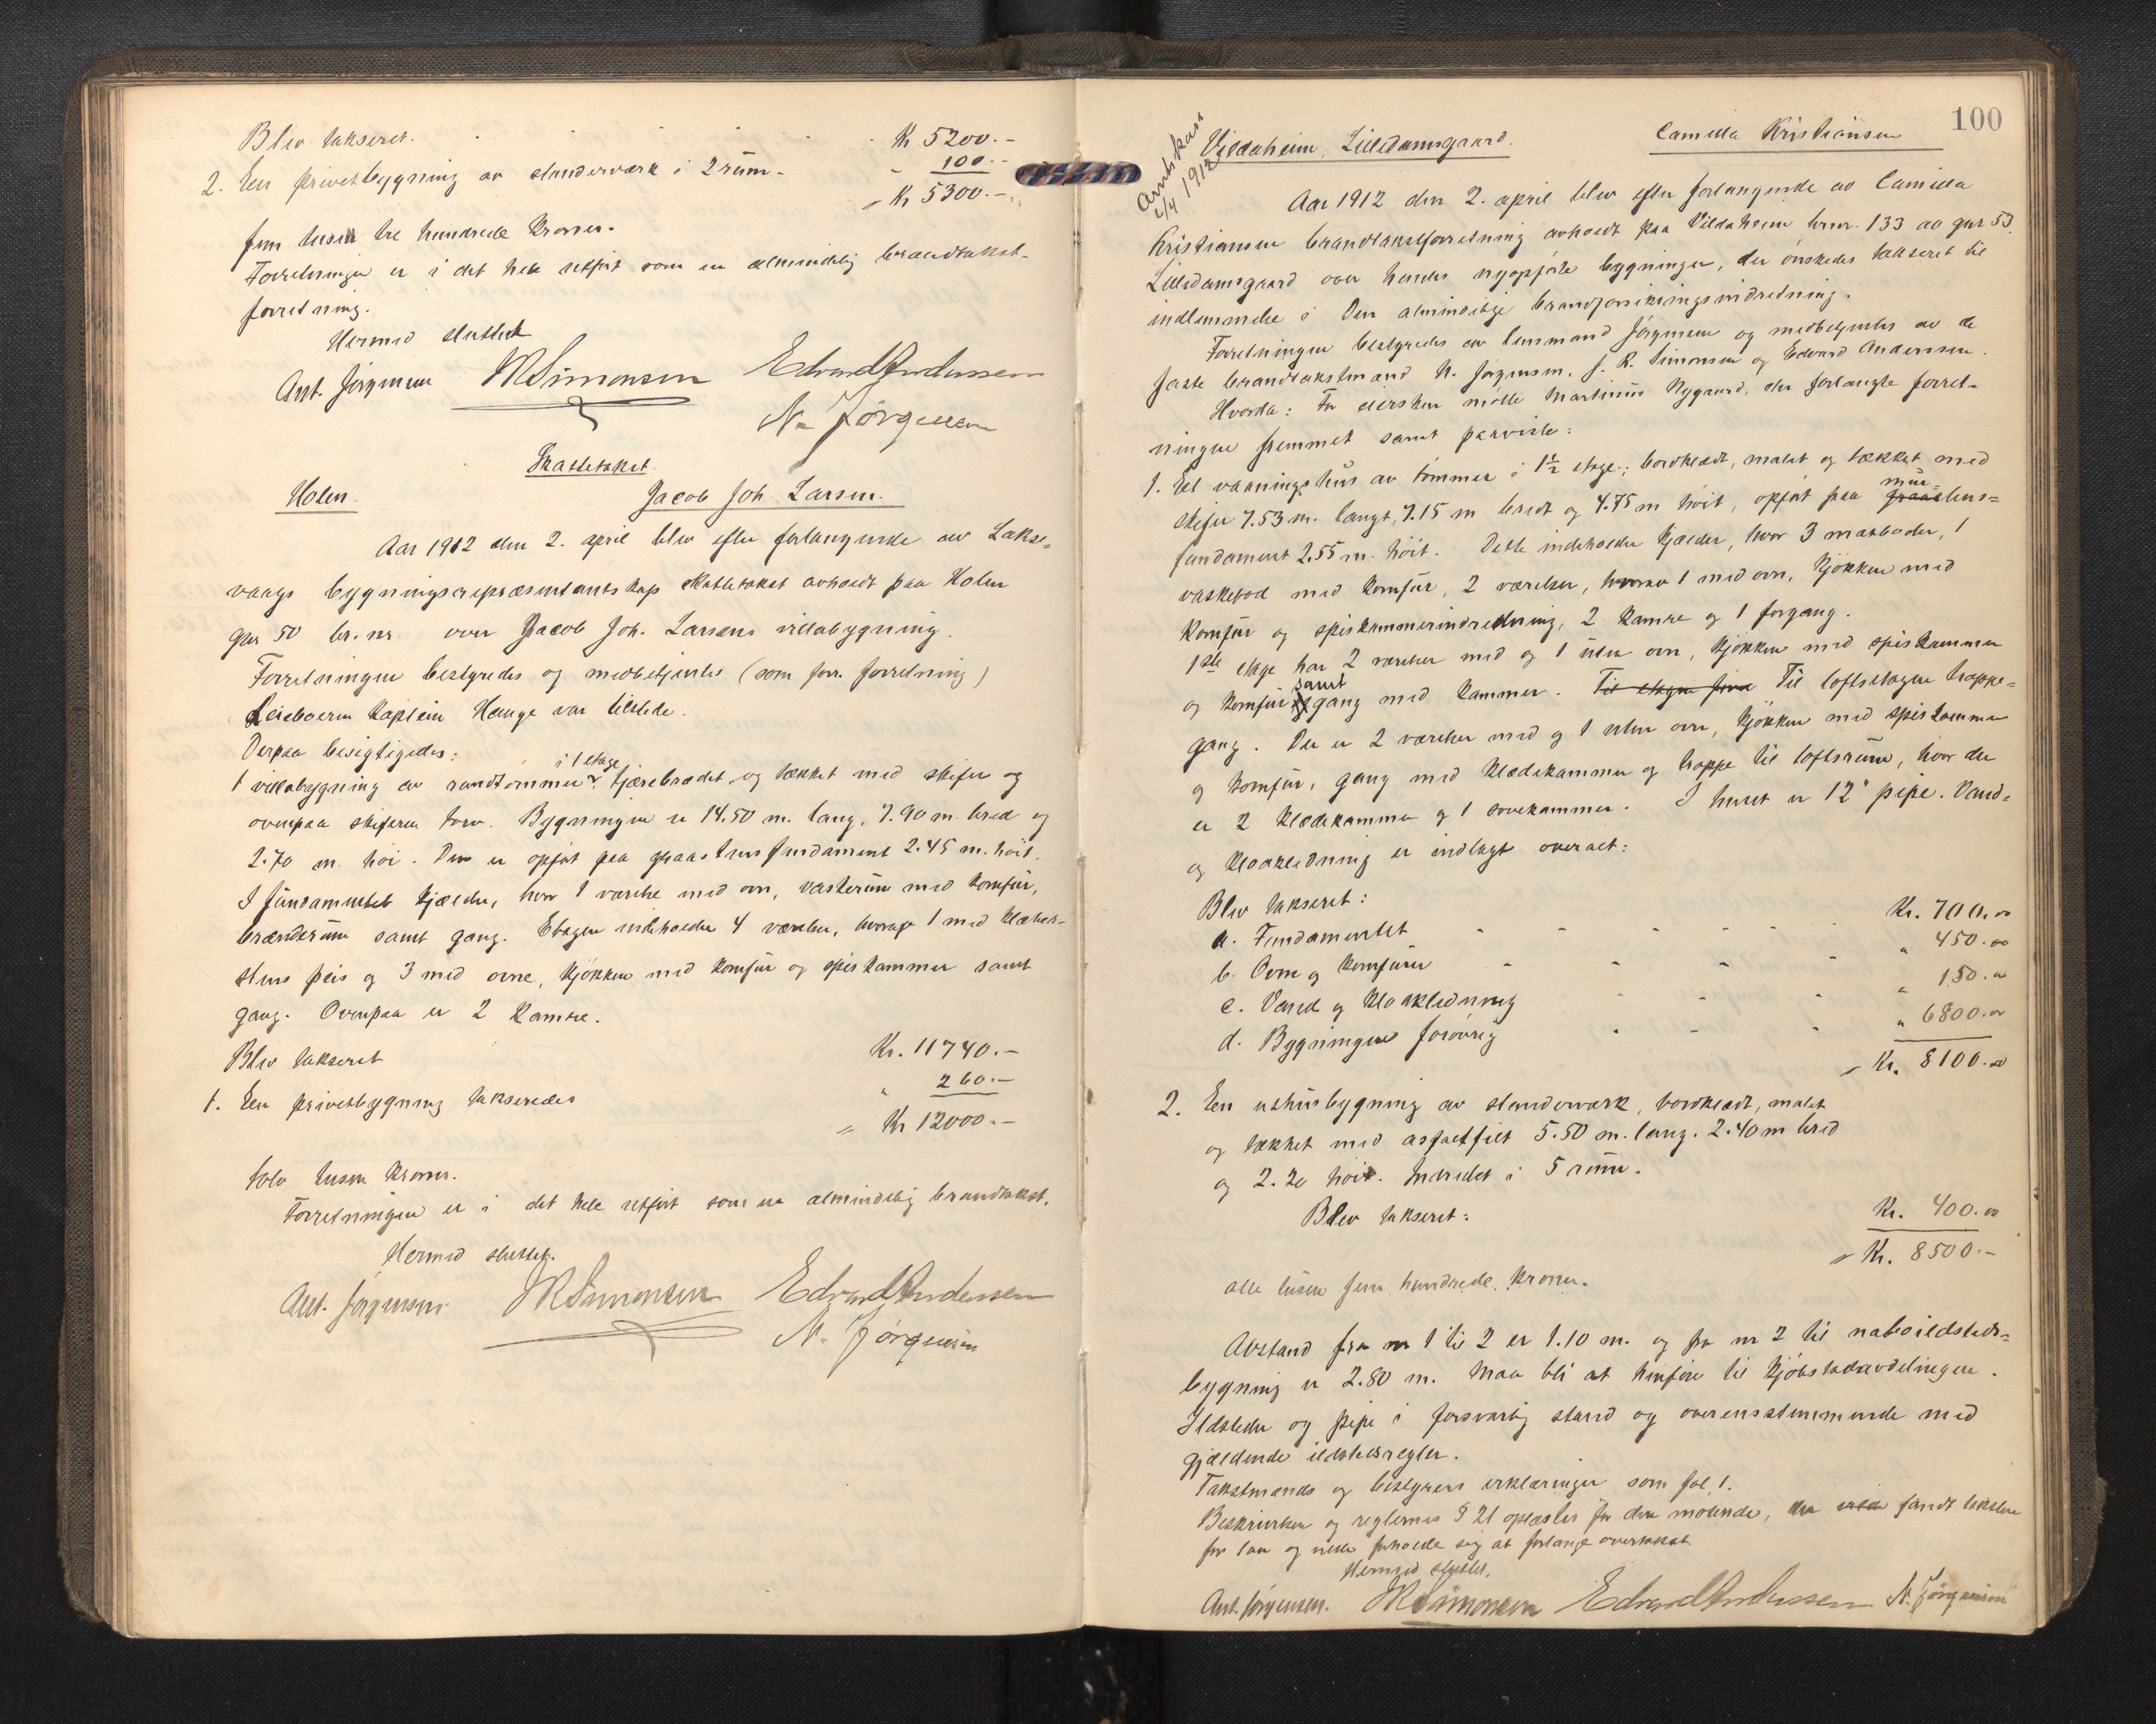 Blev takseret. Kr 5200.-
2. En privetbygning av stenderværk i 2 rum - " 100.-
Kr 5300.-
fem tusen tre hundrede kroner.
Forretningen er i det hele utført som en almindelig brandtakst-
forretning.
Hermed sluttet
Ant. Jörgensen JRSimonsen Edvard Andersen
N. Jörgensen
Skattetakst
Holen. Jacob Joh. Larsen.
Aar 1912 den 2. april blev efter forlangende av Lakse-
vaags bygningsrepræsentantskap skattetakst avholdt paa Holen
gnr 50 br. nr. over Jacob Joh. Larsens villabygning.
Forretningen bestyredes og medbetjentes (som forr. forretning)
Leieboeren Kaptein Hauge var tilstede.
Derpaa besigtigedes:
1 villabygning av rundtømmer i 1 etage tjærebrædet og tækket med skifer og
ovenpaa skiferen torv. Bygningen er 14.50 m. lang, 7.90 m. bred og
2.70 m. høi. Den er opført paa graastensfundament 2.45 m. høit.
I fundamentet kjælder, hvor 1 værelse med ovn, vaskerum med komfür,
brænderum samt gang. Etagen indeholder 4 værelser, hvorav 1 med klæber-
stens peis og 3 med ovne, kjøkken med komfür og spiskammer samt
gang. Ovenpaa er 2 kamre.
Blev takseret Kr. 11740.-
1. En privetbygning takseredes " 260.-
Kr 12000.-
tolv tusen kroner.
Forretningen er i det hele utført som en almindelig brandtakst.
Hermed sluttet.
Ant. Jörgensen JRSimonsen Edvard Andersen
N. Jörgensen
100
Amtskass 2/4 1912
Vildaheim, Lilledamsgaard. Camilla Kristiansen
Aar 1912 den 2. april blev efter forlangende av Camilla
Kristiansen brandtakstforretning avholdt paa Vildaheim brnr. 133 av gnr 53
Lilledamsgaard over hendes nyopførte bygninger, der ønskedes takseret til
indlemmelse i Den almindelige brandforsikringsindretning.
Forretningen bestyredes av lensmand Jörgensen og medbetjentes av de
faste brandtakstmænd N. Jørgensen, J. R. Simonsen og Edvard Andersen.
Hvorda: For eiersken møtte Martinus Nygaard, der forlangte forret-
ningen fremmet samt paaviste:
1. Et vaaningshus av tømmer i 1½ etage, bordklædt, malet og tækket med
skifer 7.53 m. langt, 7.15 m bredt og 4.75 m høit, opført paa graastens- mur-
fundament 2.55 m. høit. Dette indeholder kjælder, hvor 3 matboder, 1
vaskebod med komfür, 2 værelser, hvorav 1 med ovn, kjøkken med
komfür og spiskammerindredning, 2 kamre og 1 forgang.
1ste etage har 2 værelser med og 1 uten ovn, kjøkken med spiskammer
og komfür samt gang med kammer. Til etagen fire Til loftsetagen trappe-
gang. Der er 2 værelser med og 1 uten ovn, kjøkken med spiskammer
og komfür, gang med klædekammer og trappe til loftsrum, hvor der
er 2 klædekammer og 1 sovekammer. I huset er 12" pipe. Vand-
og kloakledning er indlagt overalt:
Blev takseret:
a. Fundamentet Kr. 700.00
b. Ovne og komfürer " 450.00
c. Vand og kloakledning " 150.00
d. Bygningen forøvrig " 6800.00
Kr. 8100.00
2. En uthusbygning av stenderværk, bordklædt, malet
og tækket med asfaltfilt 5.50 m. lang. 2.40 m bred
og 2.20 høi. Indredet i 5 rum.
Blev takseret: Kr. 400.00
Kr. 8500.-
otte tusen fem hundrede kroner.
Avstand fra nr 1 til 2 er 1.10 m. og fra nr 2 til naboildsteds-
bygning er 2.80 m. Maa bli at henføre til kjøbstadavdelingen.
Ildsteder og pipe i forsvarlig stand og overensstemmende med
gjældende ildstedsregler.
Takstmænds og bestyrers erklæringer som fol. 1.
Beskrivelsen og reglernes § 21 oplæstes for den møtende, der fandt taksten
for lav og vilde forholde sig at forlange overtakst
Hermed sluttet.
Ant. Jörgensen. JRSimonsen Edvard Andersen N. Jörgensen